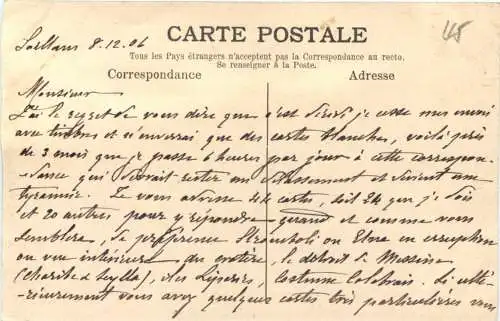 CARTE POSTALE
45
Tous les Pays étrangers n'acceptent pas la Correspondance au recto.
Se renseigner à la Poste.
8.12.06
Correspondance
Adresse
Monsieur
J'ai le regret de vous dire que c'est décidé je cesse mes envois
avec timbres et n'enverrai que des cartes blanches, voilà près
de 3 mois que je passe 6 heures par jour à cette correspon-
dance qui devrait rester un délassement et devient une
tyrannie. Je vous adresse 44 cartes, soit 24 que je dois
et 20 autres pour y répondre quand et comme vous
semblera, de préférence Stromboli ou Etna en erruption
ou vue intérieure du cratère, le détroit de Messine
(Charibde & Scylla), îles Lipariès, costume Calabrais. Si ulté-
rieurement vous avez quelques cartes très particulières vous